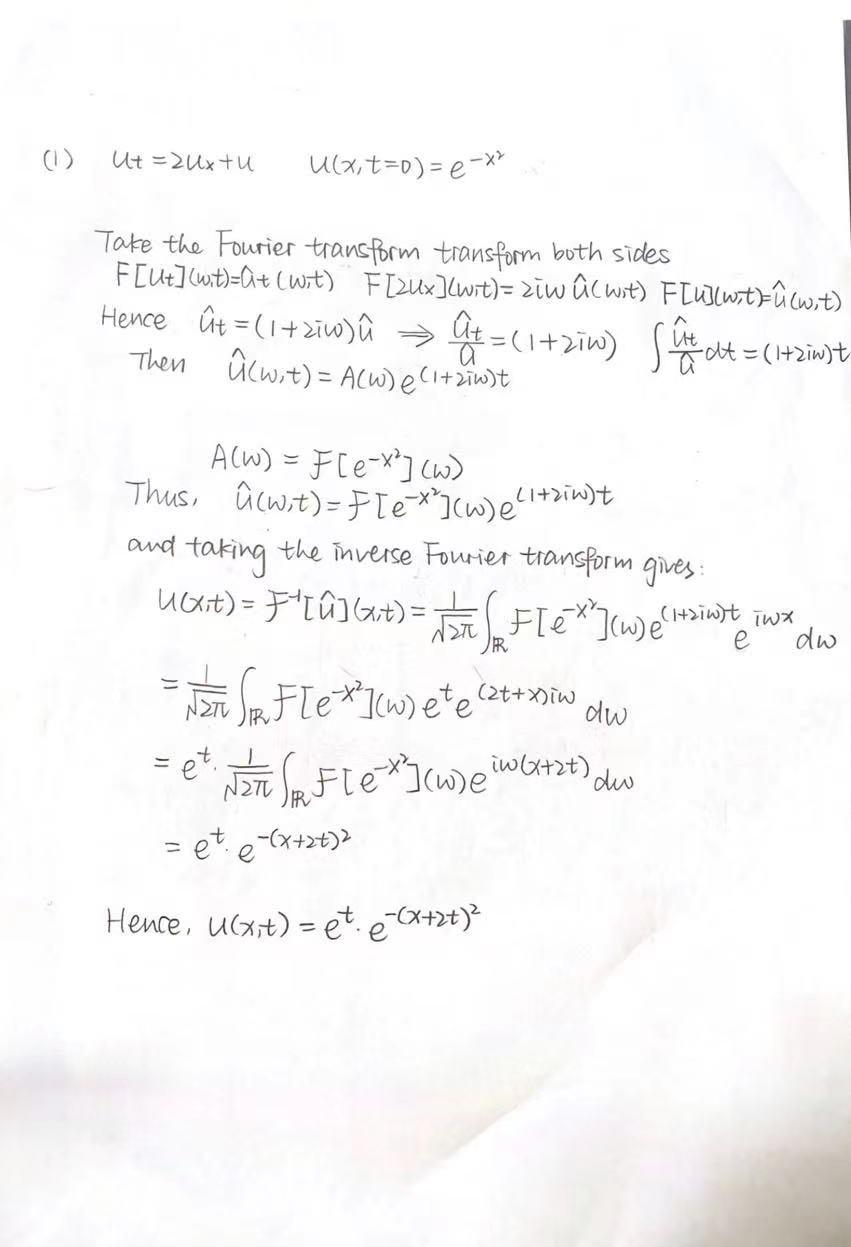 (1) Ut = 2Ux + U U(x,t=0) = e^{-x²}
Take the Fourier transform transform both sides
F[Ut](w,t)=ût(w,t) F[2Ux](w,t)=2iw û(w,t) F[U](w,t)=û(w,t)
Hence ût = (1+2iw)û ⇒ ût/û = (1+2iw) ∫ ût/û dt = (1+2iw)t
Then û(w,t) = A(w) e^{(1+2iw)t}
A(w) = F[e^{-x²}](w)
Thus, û(w,t) = F[e^{-x²}](w) e^{(1+2iw)t}
and taking the inverse Fourier transform gives:
U(x,t) = F⁻¹[û](x,t) = 1/√2π ∫_ℝ F[e^{-x²}](w) e^{(1+2iw)t} e^{iwx} dw
= 1/√2π ∫_ℝ F[e^{-x²}](w) e^t e^{(2t+x)iw} dw
= e^t · 1/√2π ∫_ℝ F[e^{-x²}](w) e^{iw(x+2t)} dw
= e^t · e^{-(x+2t)²}
Hence, U(x,t) = e^t · e^{-(x+2t)²}